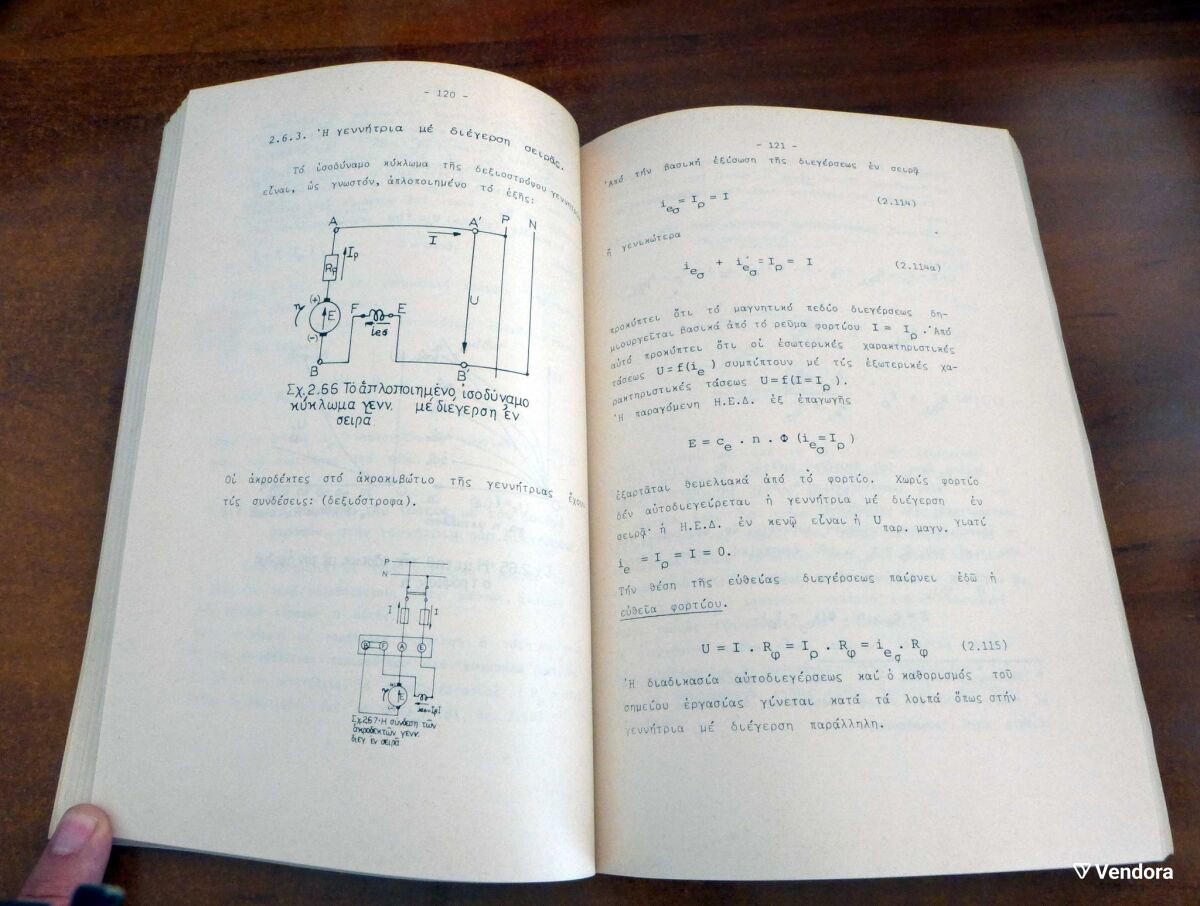 - 120 -
2.6.3. Ἡ γεννήτρια μέ διέγερση σειρᾶς.
Τό ἰσοδύναμο κύκλωμα τῆς δεξιοστρόφου
εἶναι, ὡς γνωστόν, ἁπλοποιημένο τό ἑξῆς:
A I A' P N
Rρ Iρ
(+) n E (-)
F E ieσ
U
B B'
Σχ. 2.66 Τό ἁπλοποιημένο ἰσοδύναμο
κύκλωμα γενν. μέ διέγερση ἐν
σειρᾶ
Οἱ ἀκροδέκτες στό ἀκροκιβώτιο τῆς γεννήτριας
τίς συνδέσεις: (δεξιόστροφα).
P
N
I I
B F A E
E
Σχ. 2.67 Ἡ σύνδεση τῶν
ἀκροδεκτῶν γενν.
διεγ. ἐν σειρᾶ
- 121 -
Ἀπό τήν βασική ἐξίσωση τῆς διεγέρσεως ἐν σειρᾷ
ieσ = Iρ = I (2.114)
ἤ γενικώτερα
ieσ + i'eσ = Iρ = I (2.114α)
προκύπτει ὅτι τό μαγνητικό πεδίο διεγέρσεως δη-
μιουργεῖται βασικά ἀπό τό ρεῦμα φορτίου I = Iρ. Ἀπό
αὐτό προκύπτει ὅτι οἱ ἐσωτερικές χαρακτηριστικές
τάσεως U=f(ie) συμπίπτουν μέ τίς ἐξωτερικές χα-
ρακτηριστικές τάσεως U=f(I=Iρ).
Ἡ παραγόμενη Η.Ε.Δ. ἐξ ἐπαγωγῆς
E = ce . n . Φ (ieσ=Iρ)
ἐξαρτᾶται θεμελιακά ἀπό τό φορτίο. Χωρίς φορτίο
δέν αὐτοδιεγείρεται ἡ γεννήτρια μέ διέγερση ἐν
σειρᾷ· ἡ Η.Ε.Δ. ἐν κενῷ εἶναι ἡ Uπαρ. μαγν. γιατί
ie = Iρ = I = 0.
Τήν θέση τῆς εὐθείας διεγέρσεως παίρνει ἐδῶ ἡ
εὐθεῖα φορτίου.
U = I . Rφ = Iρ . Rφ = ieσ . Rφ (2.115)
Ἡ διαδικασία αὐτοδιεγέρσεως καί ὁ καθορισμός τοῦ
σημείου ἐργασίας γίνεται κατά τά λοιπά ὅπως στήν
γεννήτρια μέ διέγερση παράλληλη.
Vendora